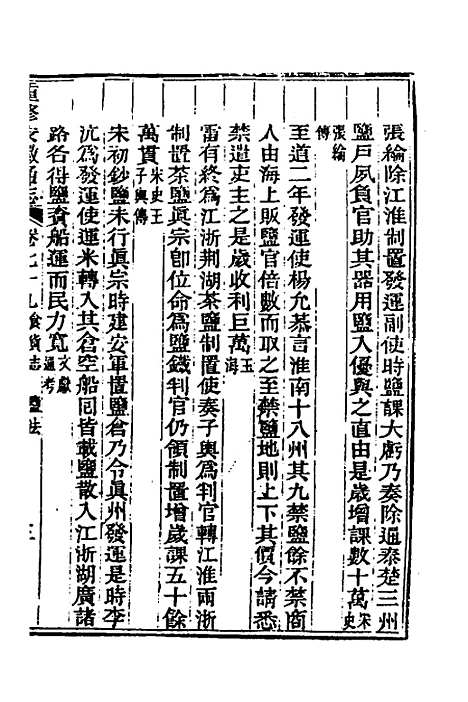 張綸除江淮制置發運副使時鹽課大虧乃奏除通泰楚三州
鹽戶夙負官助其器用鹽入優與之直由是歲增課數十萬宋史
張綸傳
至道二年發運使楊允恭言淮南十八州其九禁鹽餘不禁商
人由海上販鹽官倍數而取之至禁鹽地則上下其價今請悉
禁遣吏主之是歲收利巨萬玉海
雷有終為江浙荆湖茶鹽制置使奏子輿為判官轉江淮兩浙
制置茶鹽眞宗卽位命為鹽鐵判官仍領制置增歲課五十餘
萬貫宋史王子輿傳
宋初鈔鹽未行眞宗時建安軍置鹽倉乃令眞州發運是時李
沆爲發運使運米轉入其倉空船回皆載鹽散入江浙湖廣諸
路各得鹽資船運而民力寬文獻通考
重修安徽通志 卷七十九 食貨志 鹽法 三